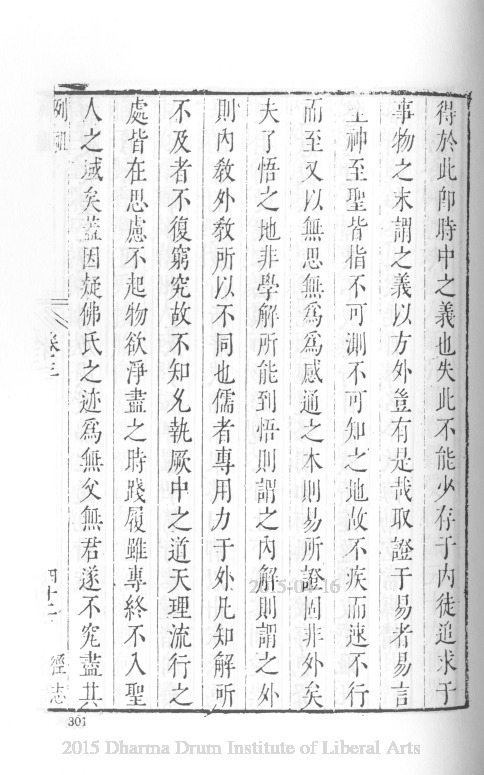 得於此卽時中之義也失此不能少存于內徒追求于
事物之末謂之義以方外豈有是哉取證于易者易言
至神至聖皆指不可測不可知之地故不疾而速不行
而至又以無思無爲爲感通之本則易所證固非外矣
夫了悟之地非學解所能到悟則謂之內解則謂之外
則內敎外敎所以不同也儒者專用力于外凡知解所
不及者不復窮究故不知允執厥中之道天理流行之
處皆在思慮不起物欲淨盡之時踐履雖專終不入聖
人之域矣蓋因疑佛氏之迹爲無父無君遂不究盡其
列祖
卷三
四十二
經志
301
2015-04-16
2015 Dharma Drum Institute of Liberal Arts